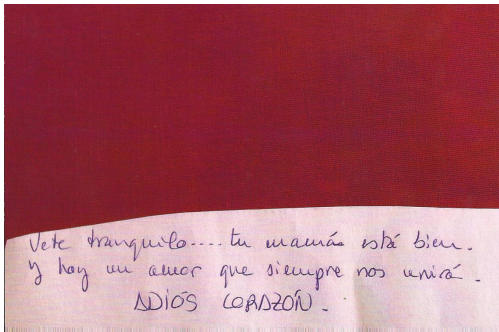 Vete tranquilo.... tu mamás está bien.
y hay un amor que siempre nos unirá.
ADIÓS CORAZÓN.